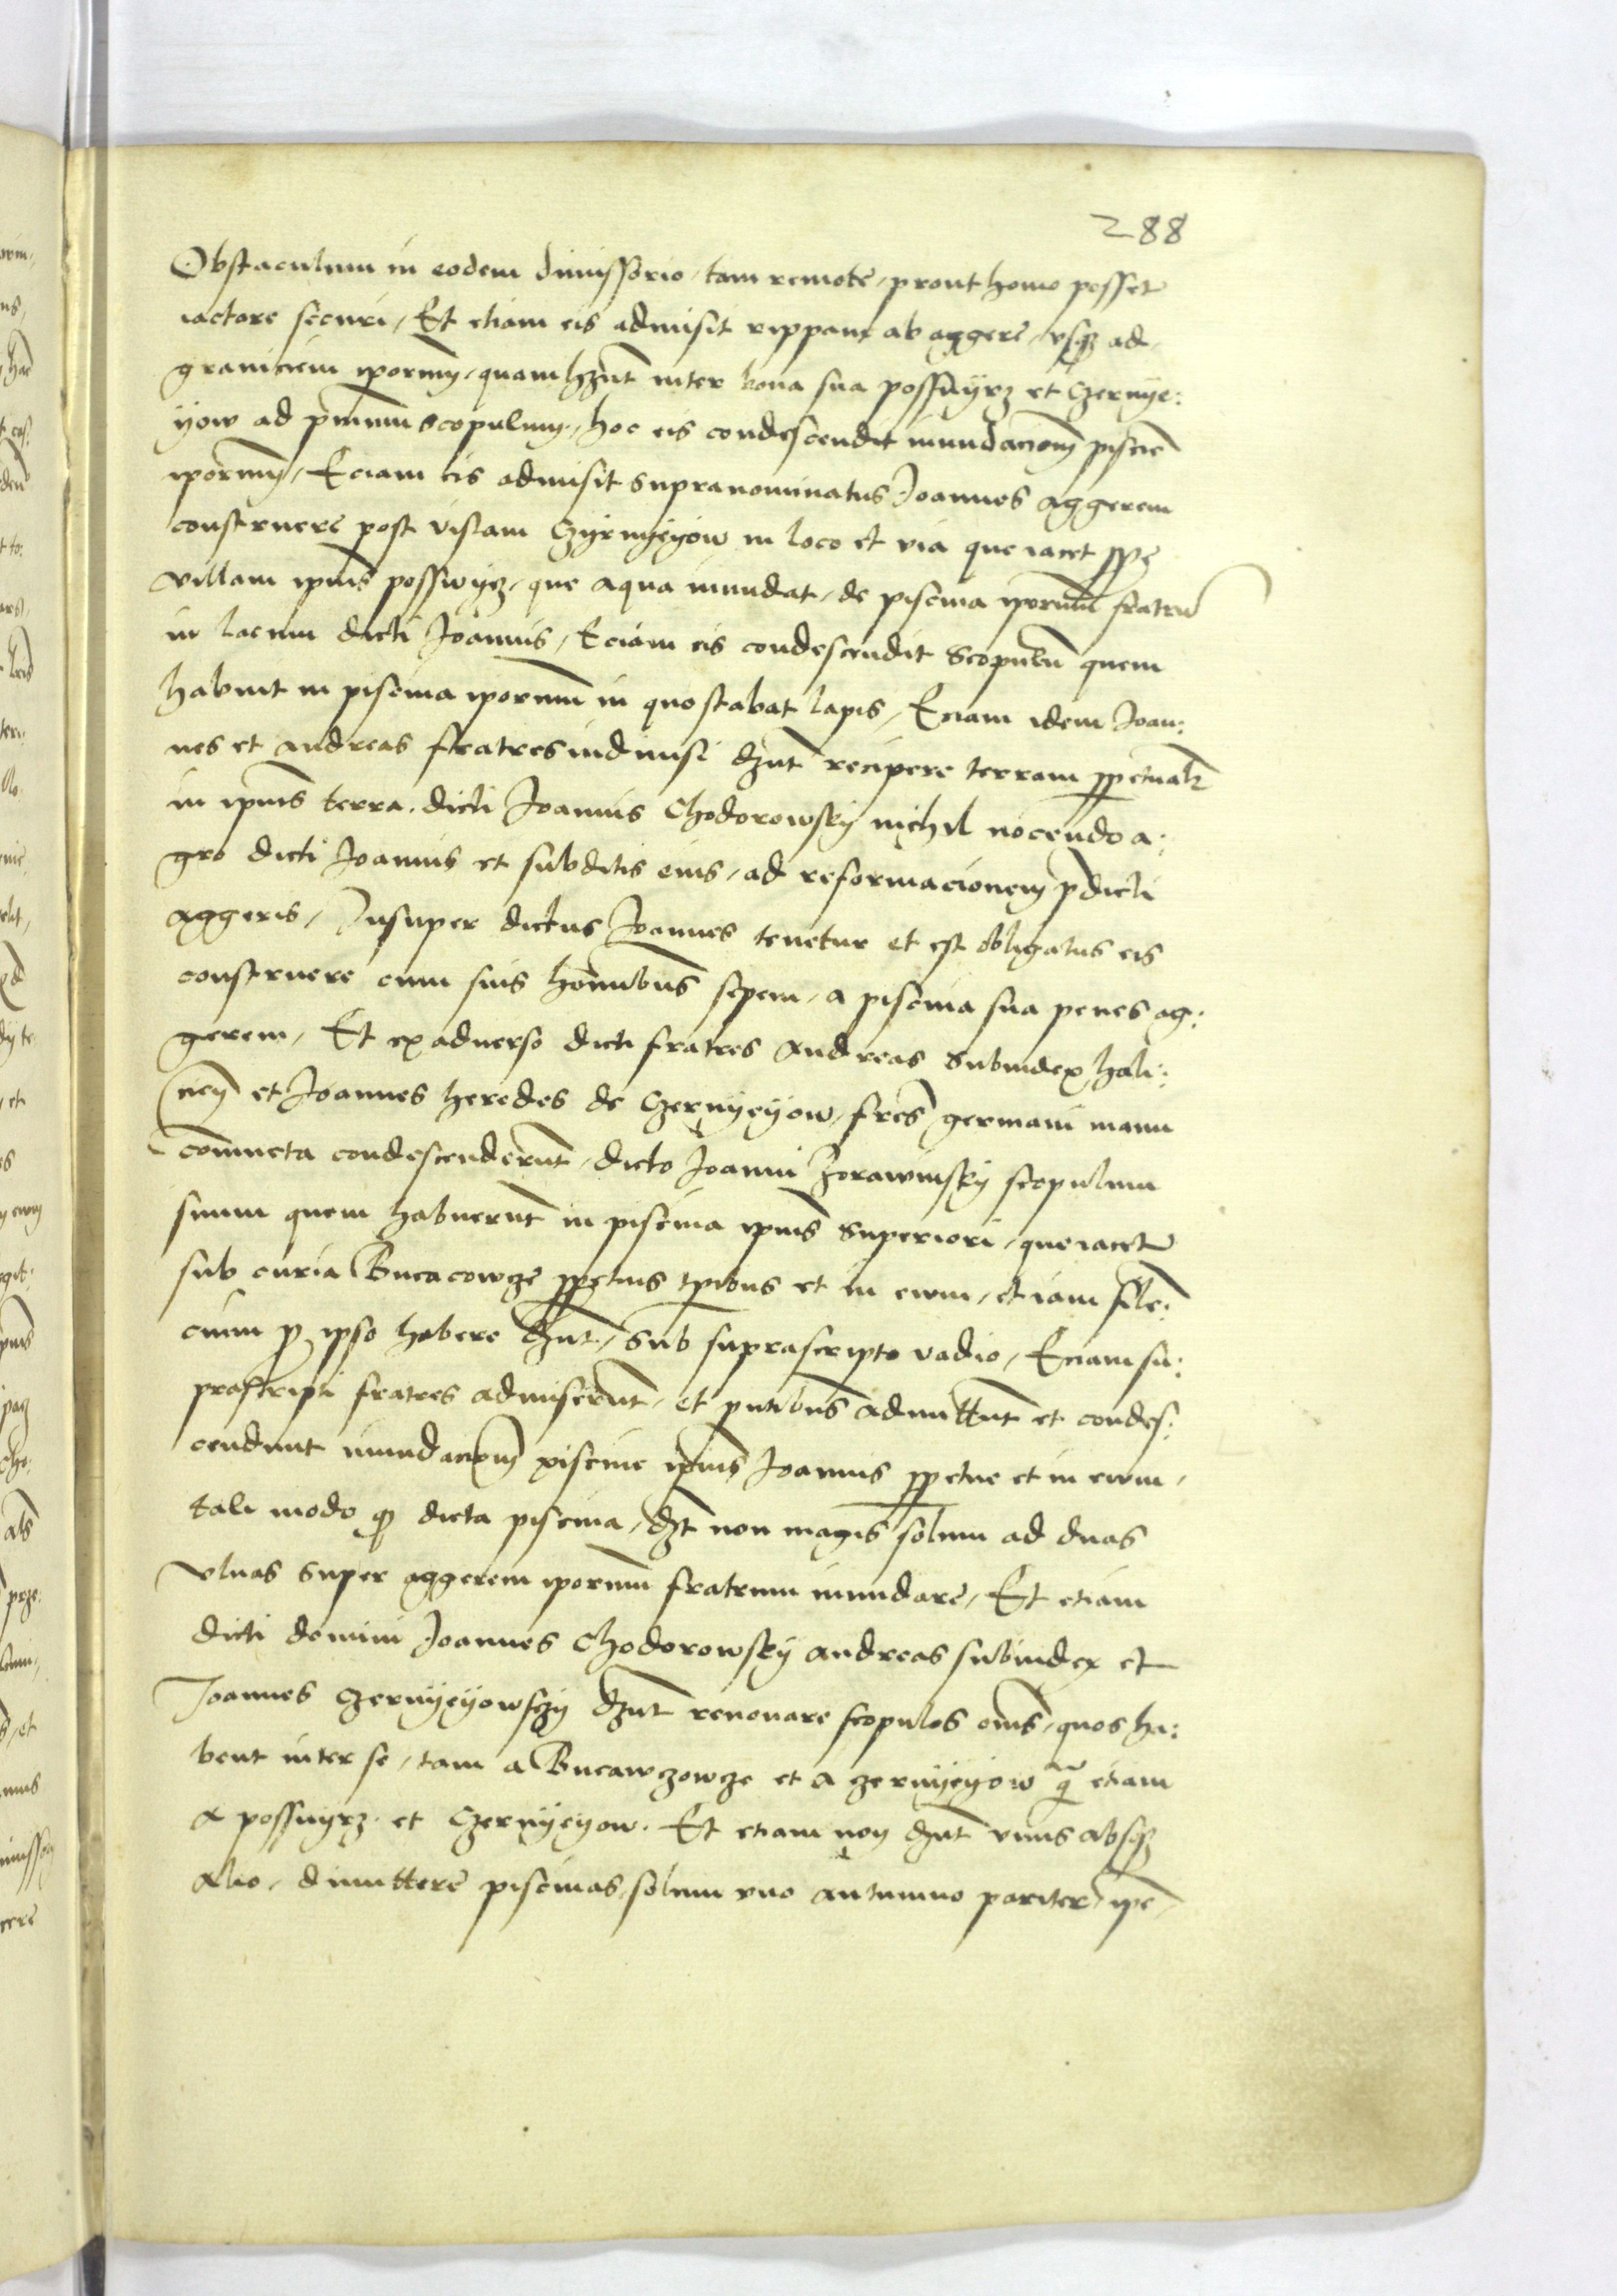 288
Obstaculum in eodem dimissorio, tam remote, prout homo posset
iactare securi, Et etiam eis admisit rippam ab aggere, vsqz ad,
graniciem ipormy, quam hznt inter bona sua possvyrz et Czernye:
yow ad pmum scopulum, hoc eis condescendit inundaciom piscie
ipormy, Eciam eis admisit supranominatus Joannes aggerem
construere post vislam Czyrnyeyow in loco et via que iacet prope
villam ipius possvyrz, que aqua inundat, de piscina iporum fratru
in lacum dicti Joannis, Eciam eis condescendit Scopulu quem
habuit in piscina iporum in quo stabat lapis, Eciam idem Joan:
nes et Andreas fratres indiuisi dznt recipere terram ppetualr
in ipius terra, dicti Joannis Chodorowsky nichil nocendo a:
gro dicti Joannis et subditis eius, ad reformacionem pdicti
aggeris, Insuper dictus Joannes tenetur et est obligatus eis
construere cum suis hominibus sepem, a piscina sua penes ag:
gerem, Et ex aduerso dicti fratres Andreas Subiudex hali:
ney et Joannes heredes de Czernyeyow, fres germani manu
coniuncta condescenderunt, dicto Joanni Zorawinsky scopulum
suum quem habuerunt in piscina ipius Superiori, que iacet
sub curia Bucacowcze ppetuis tpibus et in ewm, et iam sile:
cium p ipso habere dznt, Sub suprascripto vadio, Eciam su:
prascripti fratres admiserunt, et pntibus admittunt et condes:
cendunt inundaciom piscine ipius Joannis ppetue et in ewm,
tali modo q dicta piscina, dzt non magis solum ad duas
vlnas super aggerem iporum fratrum inundare, Et etiam
dicti domini Joannes Chodorowsky Andreas subiudex et
Joannes Czernyeyowsczy dznt renouare scopulos oms, quos ha:
bent inter se, tam a Bucawczowcze et a czernyeyow q etiam
a possuyrz et Czernyeyow. Et etiam non dznt vnus absqz
alio, dimittere piscinas, solum vno autumno pariter, ipe,